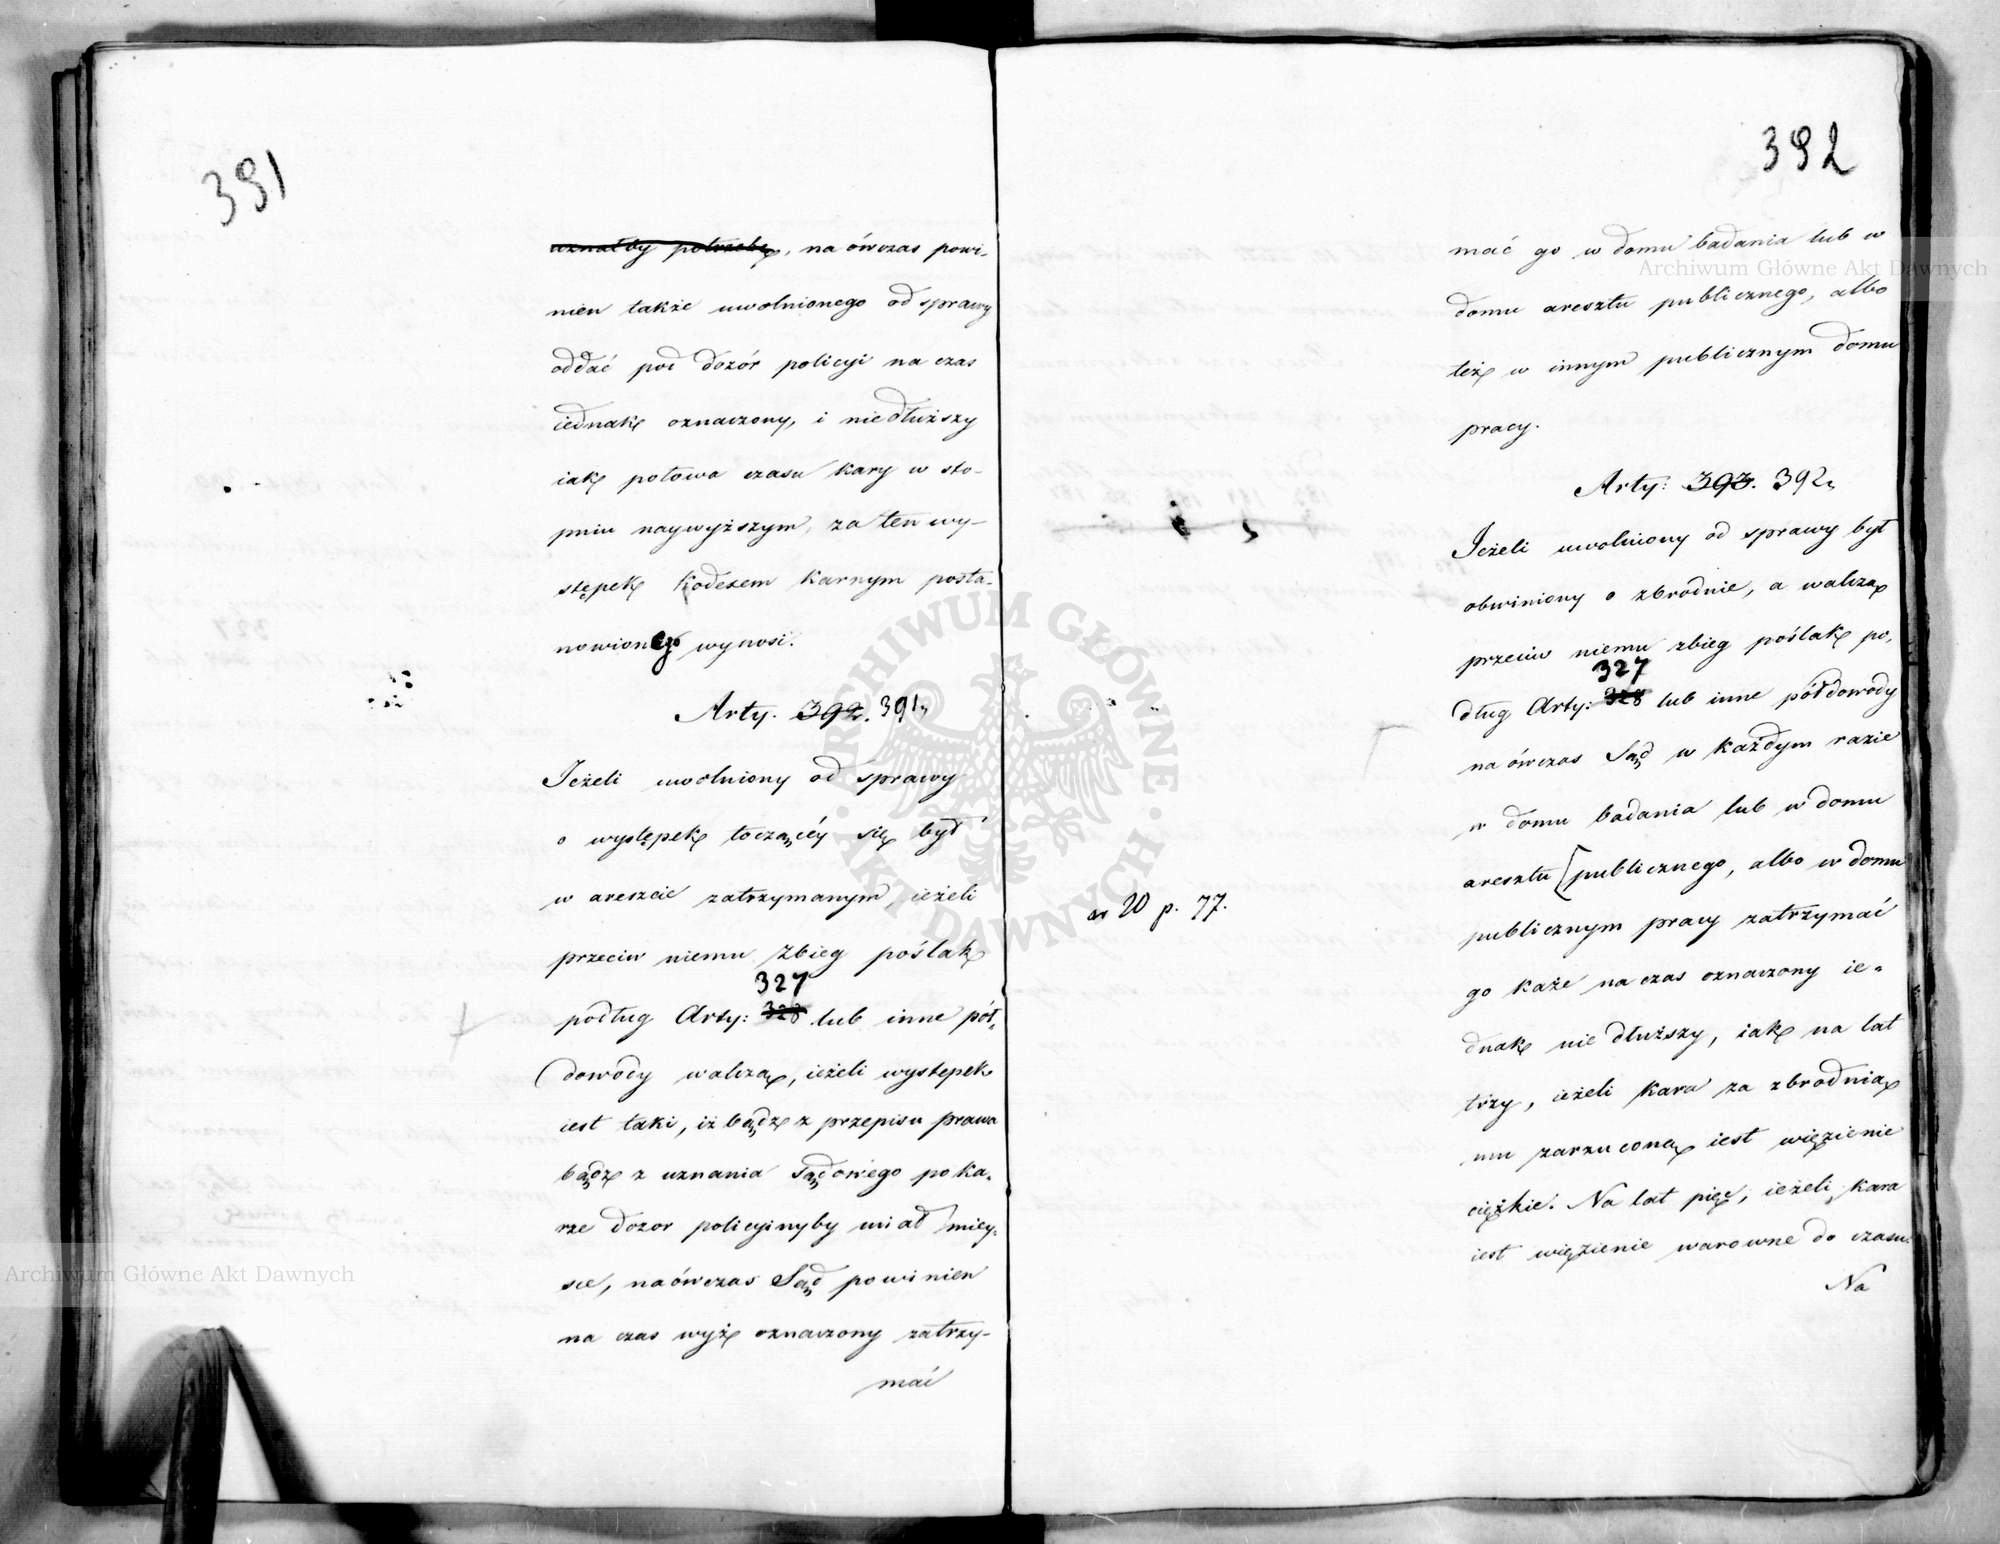 391
uznałby potrzebę, na ówczas powi-
nien także uwolnionego od sprawy
oddać pod dozór policyi na czas
iednak oznaczony, i niedłuższy
iak połowa czasu kary w sto-
pniu naywyższym, za ten wy-
stępek Kodexem Karnym posta-
nowionego wynosi.
Arty. 392. 391.
Jeżeli uwolniony od sprawy
o występek toczącéy się był
w areszcie zatrzymanym, ieżeli
przeciw niemu zbieg poślak
327
podług Arty: 328 lub inne pół-
dowody walczą, ieżeli wystepek
iest taki, iż bądź z przepisu prawa
bądź z uznania Sądowego po ka-
rze dozor policyinyby miał miey-
sce, naówczas Sąd powinien
na czas wyż oznaczony zatrzy-
mać
392
mać go w domu badania lub w
domu aresztu publicznego, albo
też w innym publicznym domu
pracy.
Arty: 393. 392.
Jeżeli uwolniony od sprawy był
obwiniony o zbrodnie, a walczą
przeciw niemu zbieg poślak po-
327
dług Arty: 328 lub inne półdowody
na ówczas Sąd w każdym razie
w domu badania lub w domu
aresztu [publicznego, albo w domu
publicznym pracy zatrzymać
go każe na czas oznaczony ie-
dnak nie dłuższy, iak na lat
trzy, ieżeli kara za zbrodnią
mu zarzuconą iest więzienie
ciężkie. Na lat pięć, ieżeli kara
iest więzienie warowne do czasu.
Na
20 p. 77.
ARCHIWUM GŁÓWNE AKT DAWNYCH
Archiwum Główne Akt Dawnych
Archiwum Główne Akt Dawnych